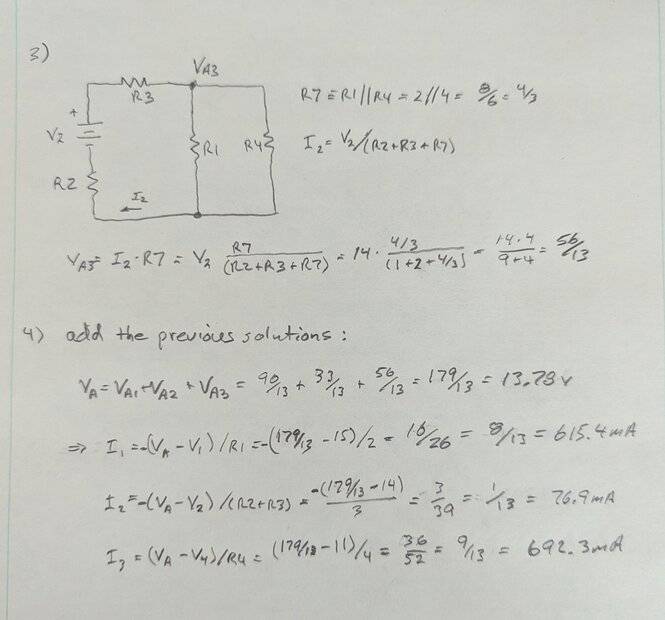 3)
VA3
R3
+
V2
R1
R4
R2
I2
R7 = R1//R4 = 2//4 = 8/6 = 4/3
I2 = V2/(R2+R3+R7)
VA3 = I2 · R7 = V2 R7/(R2+R3+R7) = 14 · 4/3/(1+2+4/3) = 14·4/9+4 = 56/13
4) add the previous solutions :
VA = VA1 + VA2 + VA3 = 90/13 + 33/13 + 56/13 = 179/13 = 13.78 v
⇒ I1 = -(VA - V1)/R1 = -(179/13 - 15)/2 = 16/26 = 8/13 = 615.4mA
I2 = -(VA - V2)/(R2+R3) = -(179/13 - 14)/3 = 3/39 = 1/13 = 76.9mA
I3 = (VA - V4)/R4 = (179/13 - 11)/4 = 36/52 = 9/13 = 692.3mA